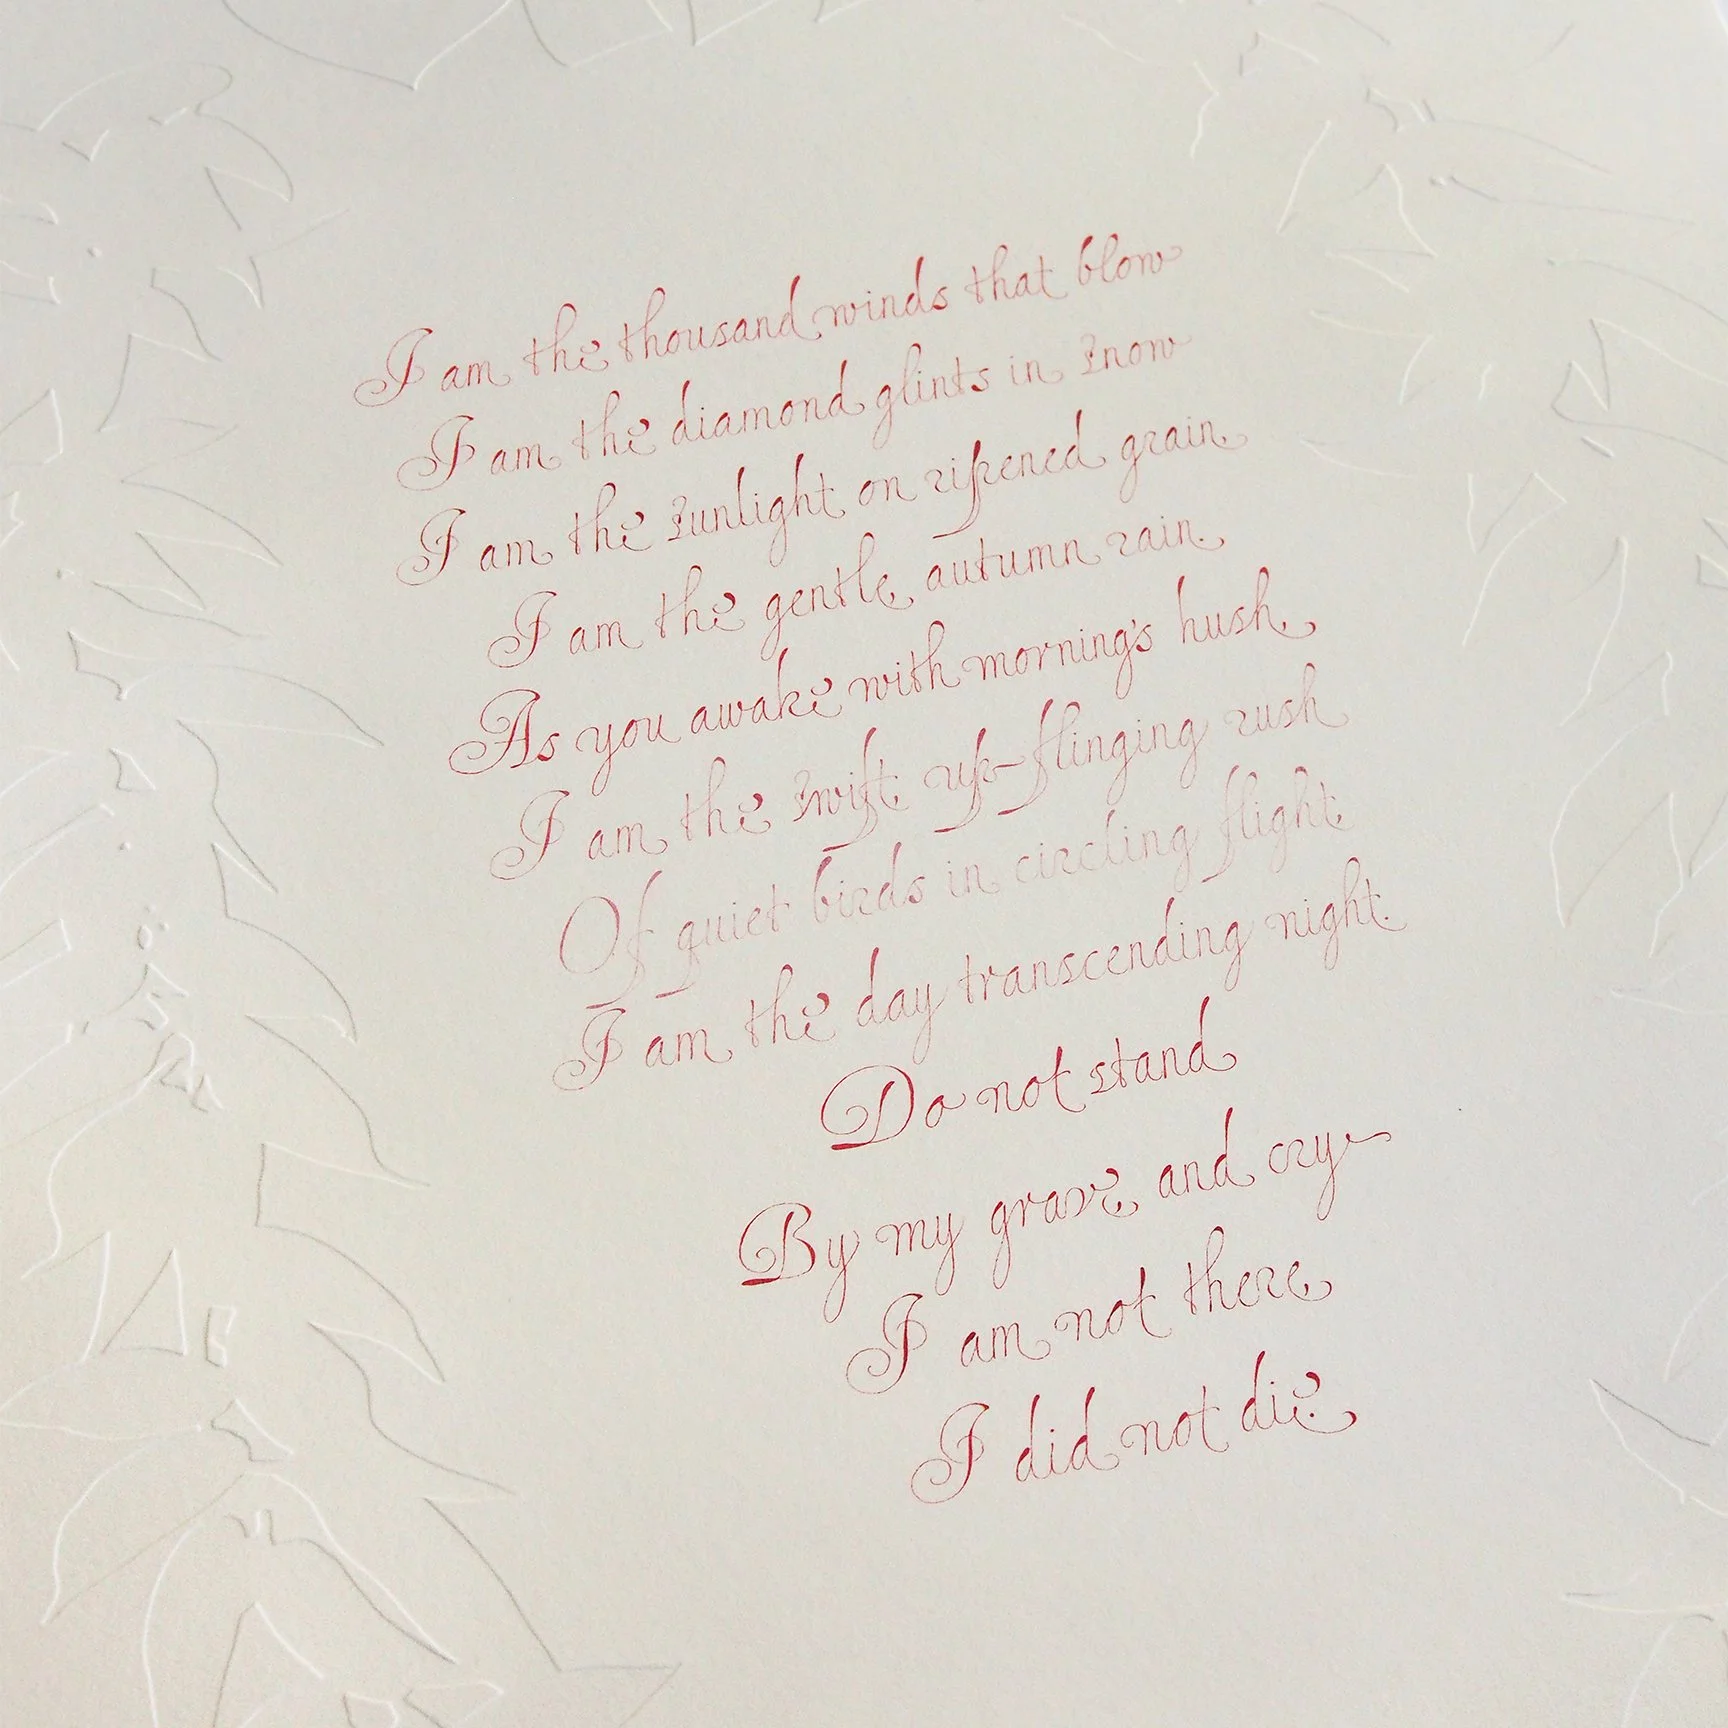 I am the thousand winds that blow
I am the diamond glints in snow
I am the sunlight on ripened grain.
I am the gentle, autumn rain.
As you awake with morning's hush,
I am the swift, up-flinging rush
Of quiet birds in circling flight.
I am the day transcending night.
Do not stand
By my grave, and cry—
I am not there,
I did not die.